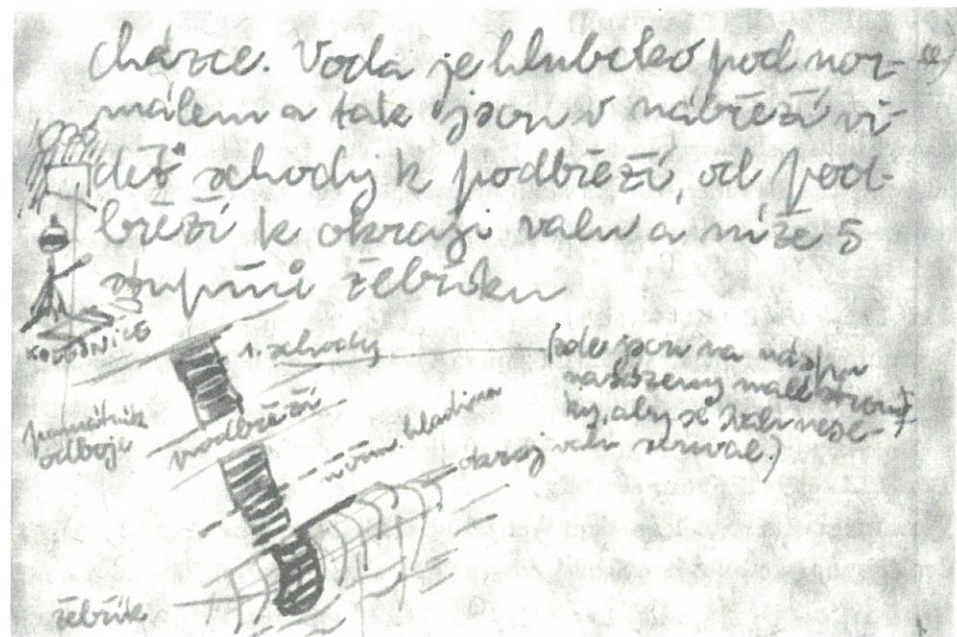 cházce. Voda je hluboko pod nor-
málem a tak jsou v nábřeží vi-
dět schody k podbřeží, od pod-
břeží k okraji valu a níže 5
stupňů žebříku
KOLEJNICE
1. schody
(zde jsou na
nasázeny malé strom-
ky, aby se val nese-
serwal.)
památník
odboje
podbřeží
norm. hladina
okraj valu
žebřík